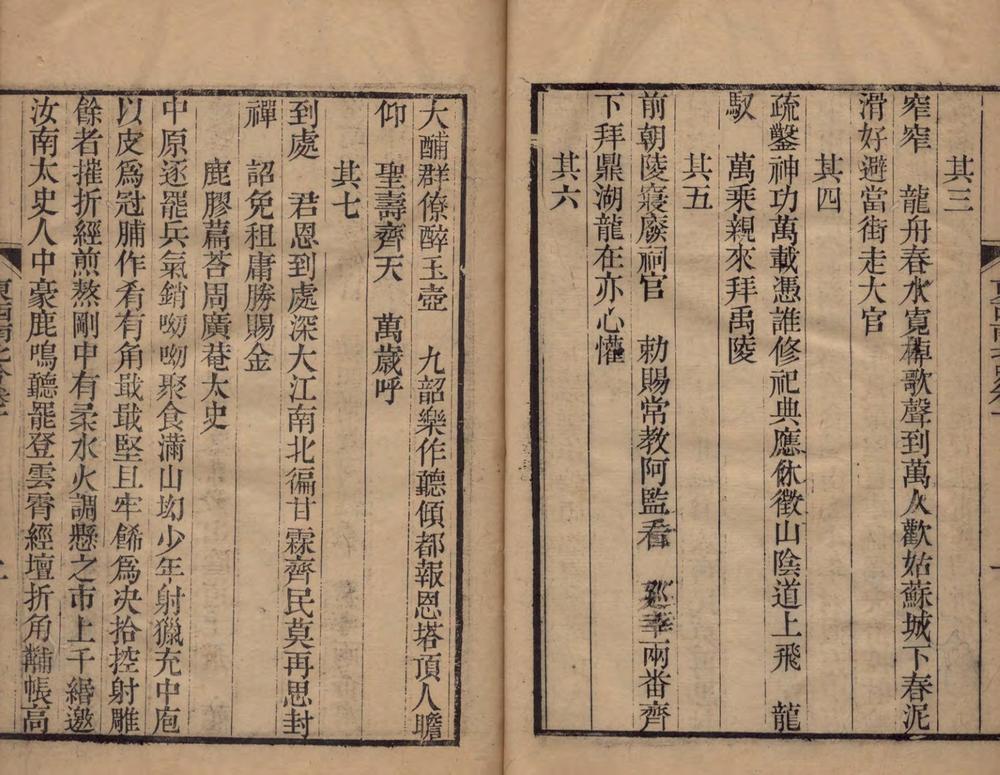 其三
窄窄　龍舟春水寬棹歌聲到萬人歡姑蘇城下春泥
滑好避當街走大官
其四
疏鑿神功萬載憑誰修祀典應休徵山陰道上飛　龍
馭　萬乘親來拜禹陵
其五
前朝陵寢廢祠官　勅賜常教阿監看　廵幸兩番齊
下拜鼎湖龍在亦心懽
其六
大酺群僚醉玉壺　九韶樂作聽傾都報恩塔頂人瞻
仰　聖壽齊天　萬歲呼
其七
到處　君恩到處深大江南北徧甘霖齊民莫再思封
禪　詔免租庸勝賜金
鹿膠篇荅周廣菴太史
中原逐罷兵氣銷呦呦聚食滿山坳少年射獵充中庖
以皮爲冠脯作肴有角戢戢堅且牢餙爲决拾控射雕
餘者摧折經煎熬剛中有柔水火調懸之市上千緡邀
汝南太史人中豪鹿鳴聽罷登雲霄經壇折角鞴帳高